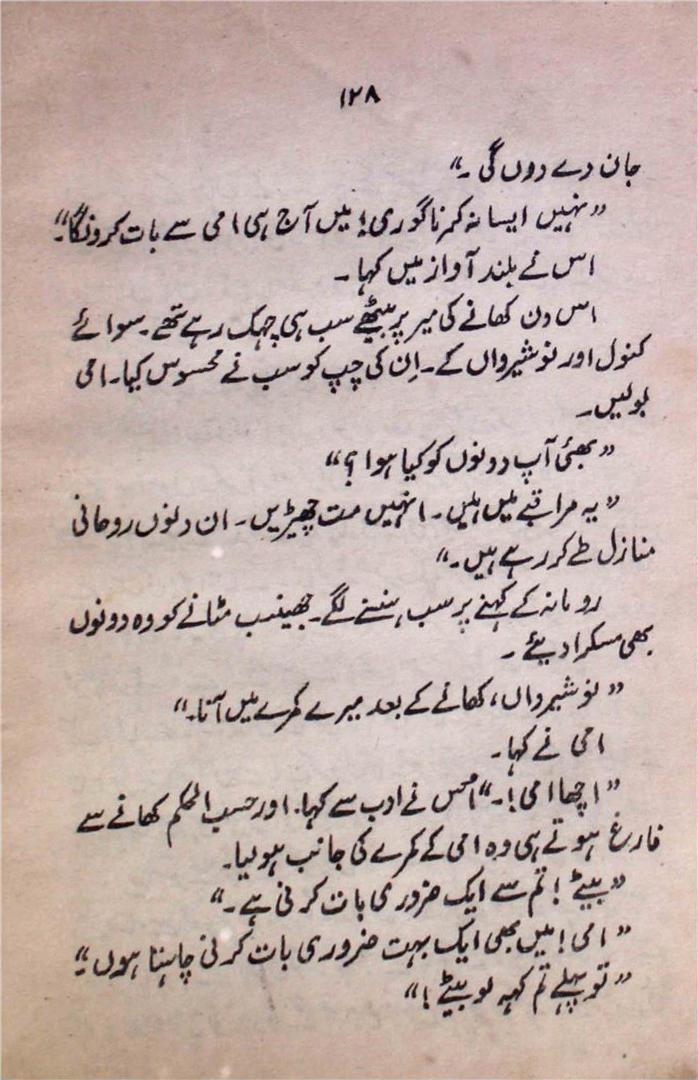 ۱۲۸
جان دے دوں گی ۔"
"نہیں ایسا نہ کرنا گوری! میں آج ہی امی سے بات کرونگا۔"
اس نے بلند آواز میں کہا ۔
اس دن کھانے کی میز پر بیٹھے سب ہی چہک رہے تھے ۔ سوائے
کنول اور نوشیرواں کے ۔ اِن کی چپ کو سب نے محسوس کیا۔ امی
بولیں ۔
"بھئی آپ دونوں کو کیا ہوا ؟"
"یہ مراقبے میں ہیں ۔ انہیں مت چھیڑیں ۔ ان دنوں روحانی
منازل طے کر رہے ہیں ۔"
رومانہ کے کہنے پر سب ہنسنے لگے ۔ جھینپ مٹانے کو وہ دونوں
بھی مسکرا دیئے ۔
"نوشیرواں، کھانے کے بعد میرے کمرے میں آنا۔"
امی نے کہا ۔
"اچھا امی! ۔" اُس نے ادب سے کہا۔ اور حسب الحکم کھانے سے
فارغ ہوتے ہی وہ امی کے کمرے کی جانب ہو لیا۔
"بیٹے ! تم سے ایک ضروری بات کرنی ہے ۔"
"امی! میں بھی ایک بہت ضروری بات کرنی چاہتا ہوں ۔"
"تو پہلے تم کہہ لو بیٹے !"